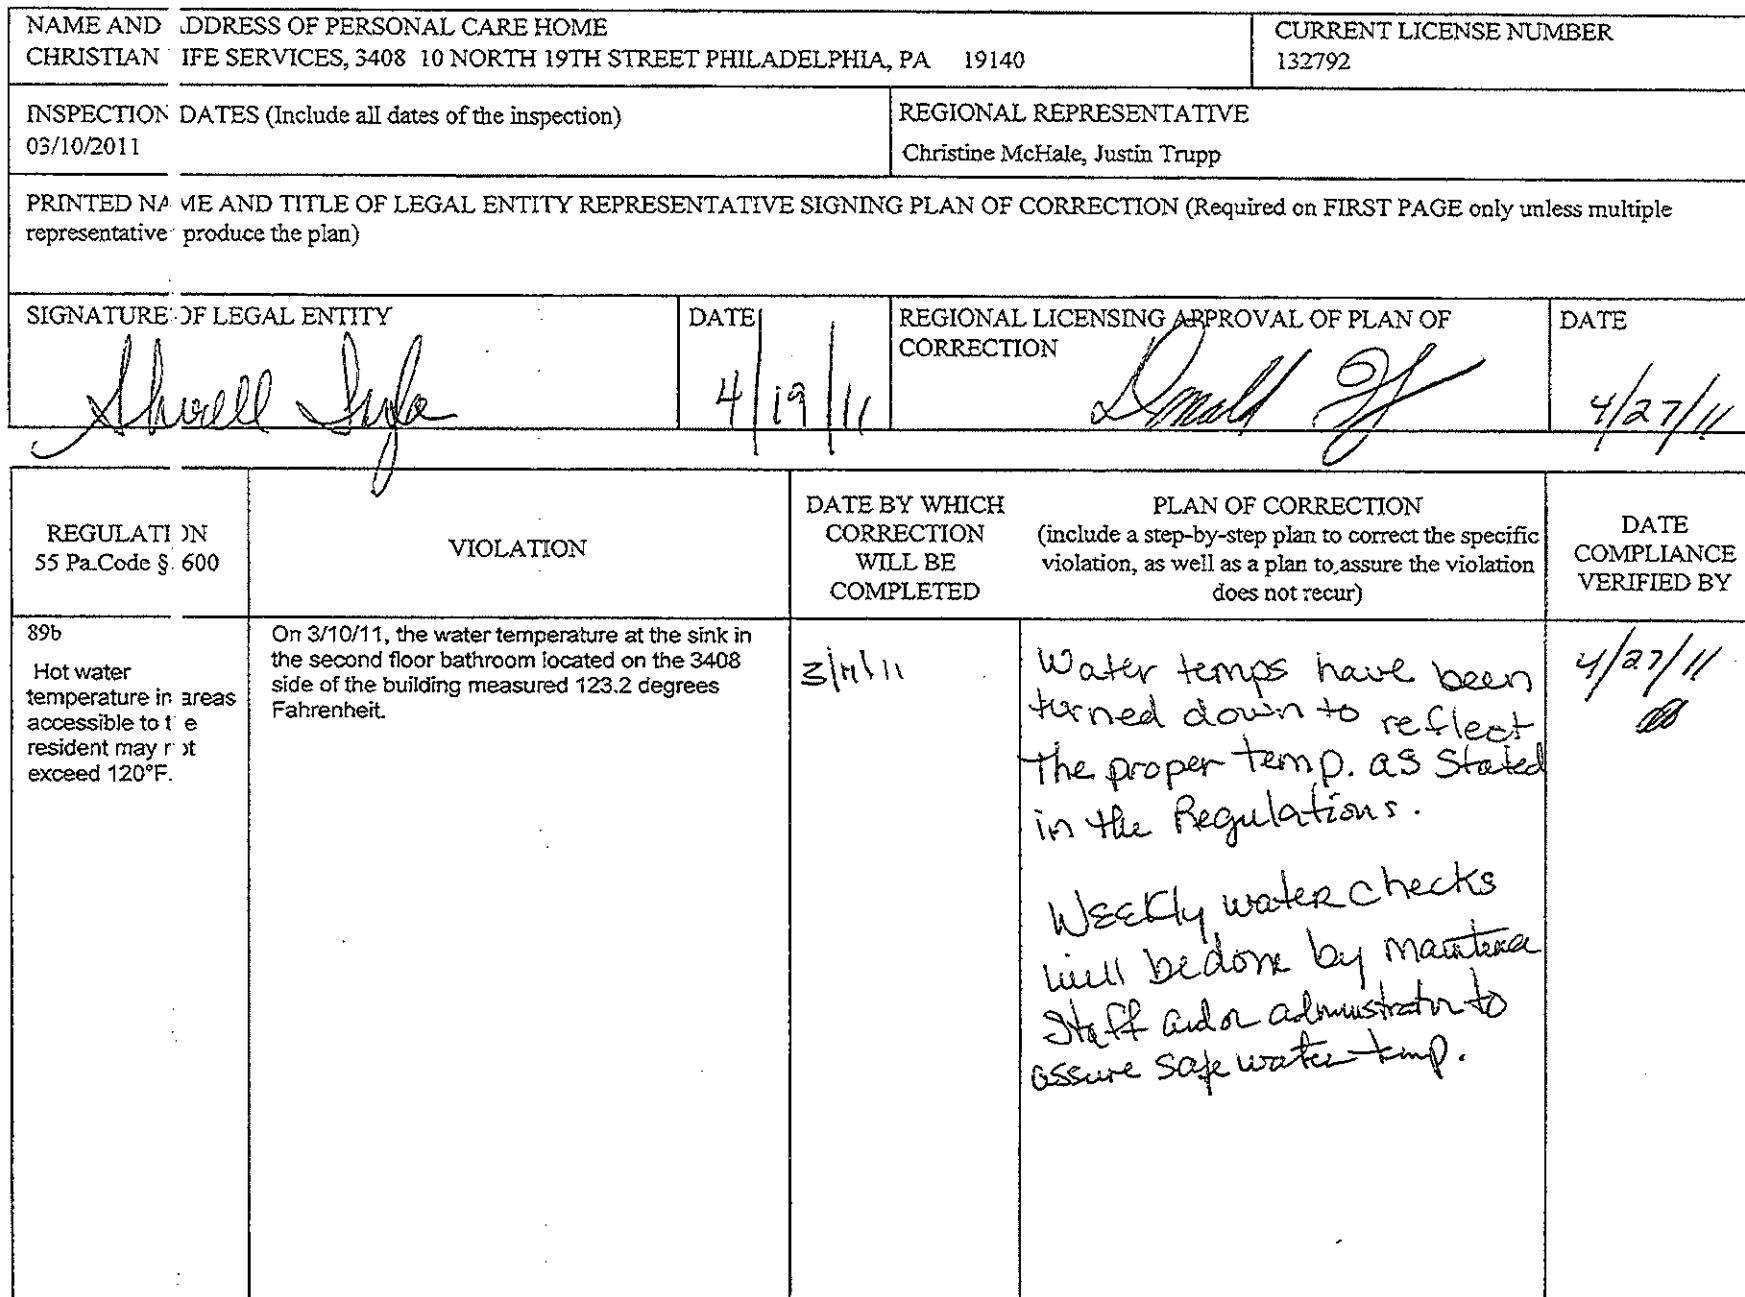 NAME AND DDRESS OF PERSONAL CARE HOME
CHRISTIAN IFE SERVICES, 3408 10 NORTH 19TH STREET PHILADELPHIA, PA 19140
CURRENT LICENSE NUMBER
132792
INSPECTION DATES (Include all dates of the inspection)
03/10/2011
REGIONAL REPRESENTATIVE
Christine McHale, Justin Trupp
PRINTED NA ME AND TITLE OF LEGAL ENTITY REPRESENTATIVE SIGNING PLAN OF CORRECTION (Required on FIRST PAGE only unless multiple
representative produce the plan)
SIGNATURE OF LEGAL ENTITY
DATE
4/19/11
REGIONAL LICENSING APPROVAL OF PLAN OF
CORRECTION
Donald
DATE
4/27/11
REGULATI ON
55 Pa.Code § 600
VIOLATION
DATE BY WHICH
CORRECTION
WILL BE
COMPLETED
PLAN OF CORRECTION
(include a step-by-step plan to correct the specific
violation, as well as a plan to assure the violation
does not recur)
DATE
COMPLIANCE
VERIFIED BY
89b
Hot water
temperature in areas
accessible to t e
resident may r ot
exceed 120°F.
On 3/10/11, the water temperature at the sink in
the second floor bathroom located on the 3408
side of the building measured 123.2 degrees
Fahrenheit.
Water temps have been
turned down to reflect
the proper temp. as Stated
in the Regulations.
Weekly water checks
will be done by
Staff administrator to
assure safe water temp.
4/27/11